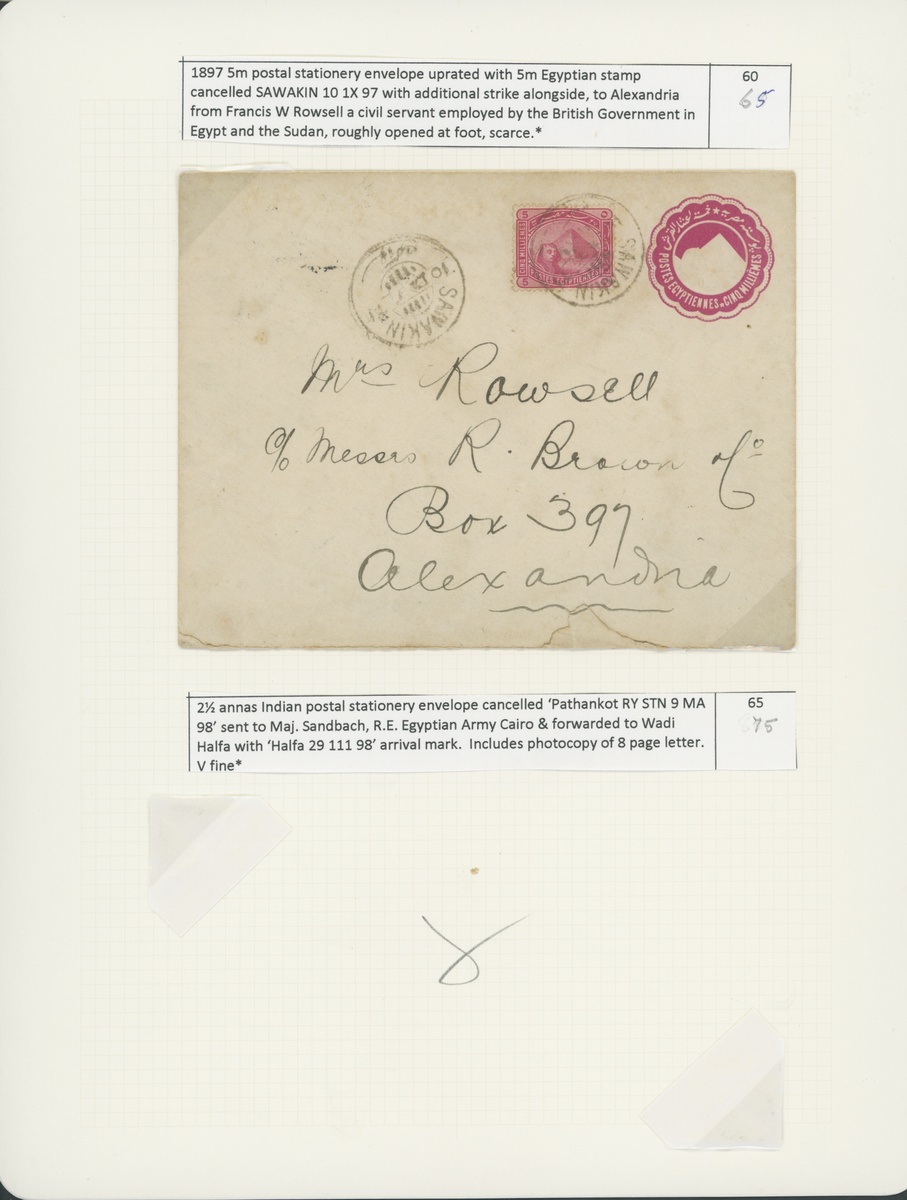 1897 5m postal stationery envelope uprated with 5m Egyptian stamp
cancelled SAWAKIN 10 1X 97 with additional strike alongside, to Alexandria
from Francis W Rowsell a civil servant employed by the British Government in
Egypt and the Sudan, roughly opened at foot, scarce.*
60
65
SAWAKIN
10 IX
5 CINQ MILLIEMES
5
SAWAKIN
POSTES EGYPTIENNES. CINQ MILLIEMES
Mrs Rowsell
c/o Messrs R. Brown & Co
Box 397
Alexandria
2½ annas Indian postal stationery envelope cancelled ‘Pathankot RY STN 9 MA
98’ sent to Maj. Sandbach, R.E. Egyptian Army Cairo & forwarded to Wadi
Halfa with ‘Halfa 29 111 98’ arrival mark. Includes photocopy of 8 page letter.
V fine*
65
75